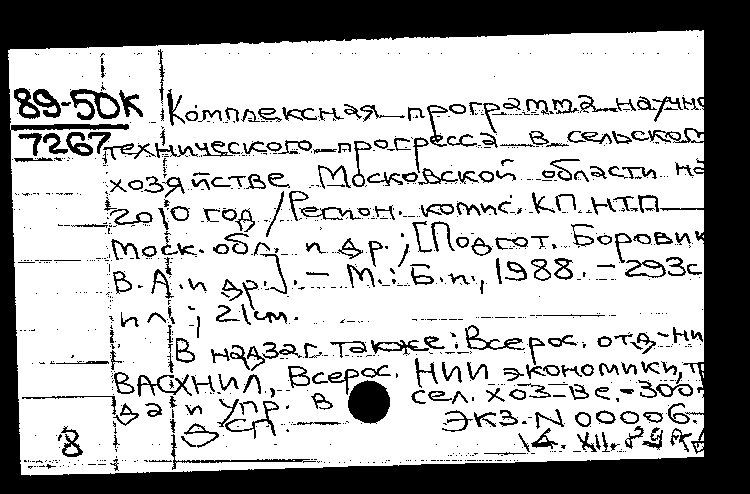 89-50К Комплексная программа научно
7267 технического прогресса в сельском
хозяйстве Московской области на
2010 год / Регион. комис. КП НТП
Моск. обл. и др.; [Подгот. Боровик
В. А. и др.]. - М.: Б. и., 1988. - 293с
ил; 21см.
В надзаг. также: Всерос. отд-ни
ВАСХНИЛ, Всерос. НИИ экономики, тр
да и упр. в сел. хоз-ве. - 300
ДСП. ЭКЗ. N 00006.
8